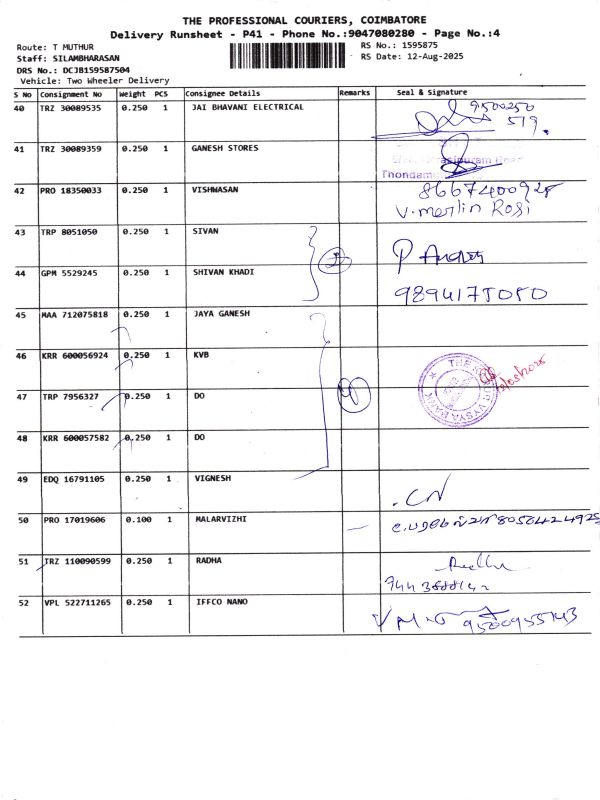 THE PROFESSIONAL COURIERS, COIMBATORE
Delivery Runsheet - P41 - Phone No.:9047080280 - Page No.:4
Route: T MUTHUR
RS No.: 1595875
Staff: SILAMBHARASAN
RS Date: 12-Aug-2025
DRS No.: DCJB159587504
Vehicle: Two Wheeler Delivery
S No Consignment No Weight PCS Consignee Details Remarks Seal & Signature
40 TRZ 30089535 0.250 1 JAI BHAVANI ELECTRICAL 9500250
519.
41 TRZ 30089359 0.250 1 GANESH STORES
Thondamu
42 PRO 18350033 0.250 1 VISHWASAN 8667400925
V.merlin Rosi
43 TRP 8051050 0.250 1 SIVAN
44 GPM 5529245 0.250 1 SHIVAN KHADI
9894175050
45 MAA 712075818 0.250 1 JAYA GANESH
46 KRR 600056924 0.250 1 KVB
47 TRP 7956327 0.250 1 DO
VYSYA BANK
48 KRR 600057582 0.250 1 DO
49 EDQ 16791105 0.250 1 VIGNESH
50 PRO 17019606 0.100 1 MALARVIZHI — 8056424925
51 TRZ 110090599 0.250 1 RADHA Radha
52 VPL 522711265 0.250 1 IFFCO NANO 9500955143